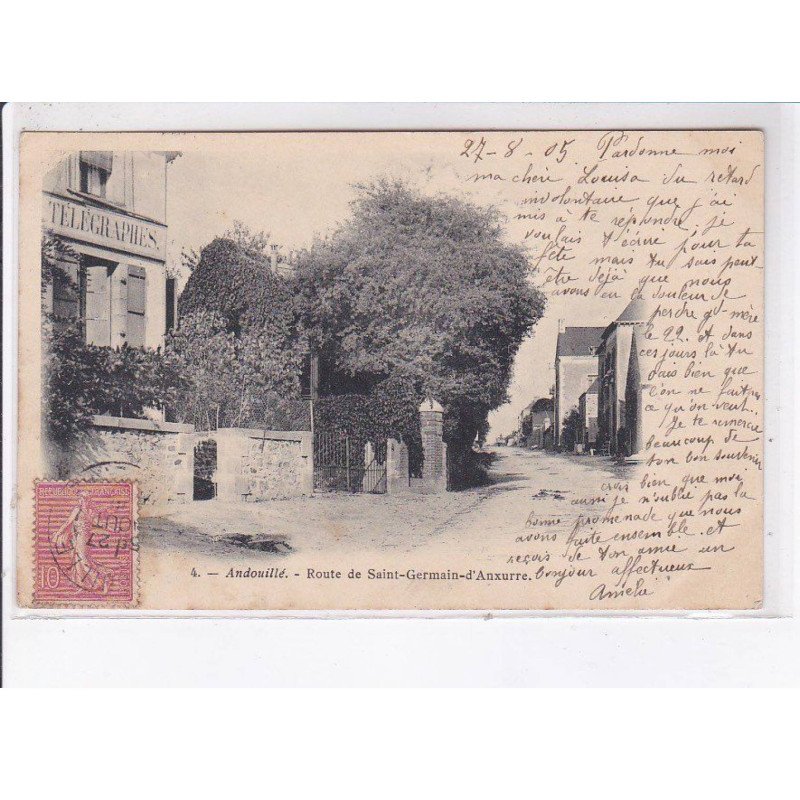 27-8-05 Pardonne moi
ma chère Louisa du retard
involontaire que j'ai
mis à te repondre, je
voulais t'écrire pour ta
fête mais tu sais peut-
être dejà que nous
avons eu la douleur de
perdre gd-mère
le 22. et dans
ces jours là tu
sais bien que
l'on ne fait pas
ce qu'on veut.
Je te remercie
beaucoup de
ton bon souvenir
crois bien que moi
aussi je n'oublie pas la
bonne promenade que nous
avons faite ensemble et
reçois de ton amie un
bonjour affectueux
Amélie
TÉLÉGRAPHES.
RÉPUBLIQUE FRANÇAISE
10
27
AOUT
4. — Andouillé. - Route de Saint-Germain-d'Anxurre.